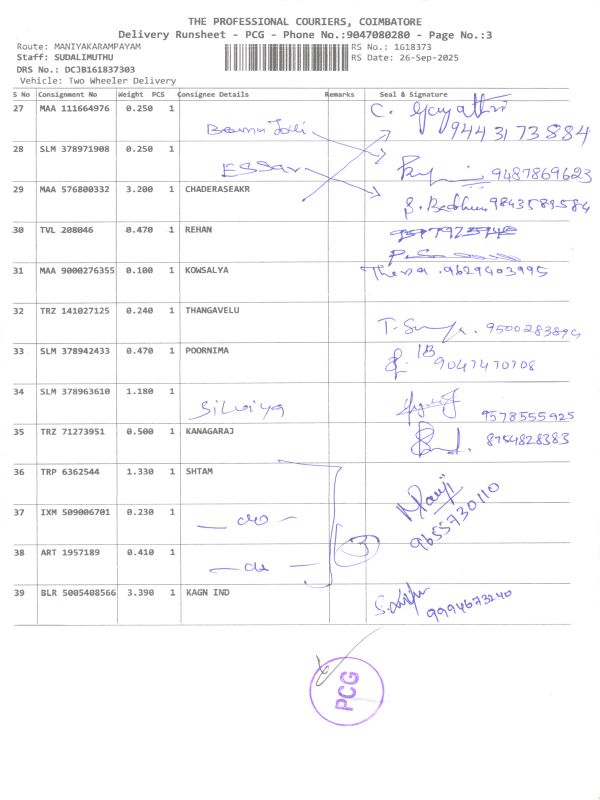 THE PROFESSIONAL COURIERS, COIMBATORE
Delivery Runsheet - PCG - Phone No.:9047080280 - Page No.:3
Route: MANIYAKARAMPAYAM RS No.: 1618373
Staff: SUDALIMUTHU RS Date: 26-Sep-2025
DRS No.: DCJB161837303
Vehicle: Two Wheeler Delivery
S No Consignment No Weight PCS Consignee Details Remarks Seal & Signature
27 MAA 111664976 0.250 1 C. Gayathri
9443173884
28 SLM 378971908 0.250 1 ESSar 9487869623
29 MAA 576800332 3.200 1 CHADERASEAKR 9843589584
30 TVL 208046 0.470 1 REHAN
31 MAA 9000276355 0.100 1 KOWSALYA 9629403995
32 TRZ 141027125 0.240 1 THANGAVELU
33 SLM 378942433 0.470 1 POORNIMA 9047470708
34 SLM 378963610 1.180 1 Silviya 9578555925
35 TRZ 71273951 0.500 1 KANAGARAJ 8754828383
36 TRP 6362544 1.330 1 SHTAM
37 IXM 509006701 0.230 1 - do - 9655730110
38 ART 1957189 0.410 1 - do - 3
39 BLR 5005408566 3.390 1 KAGN IND 9994673240
PCG